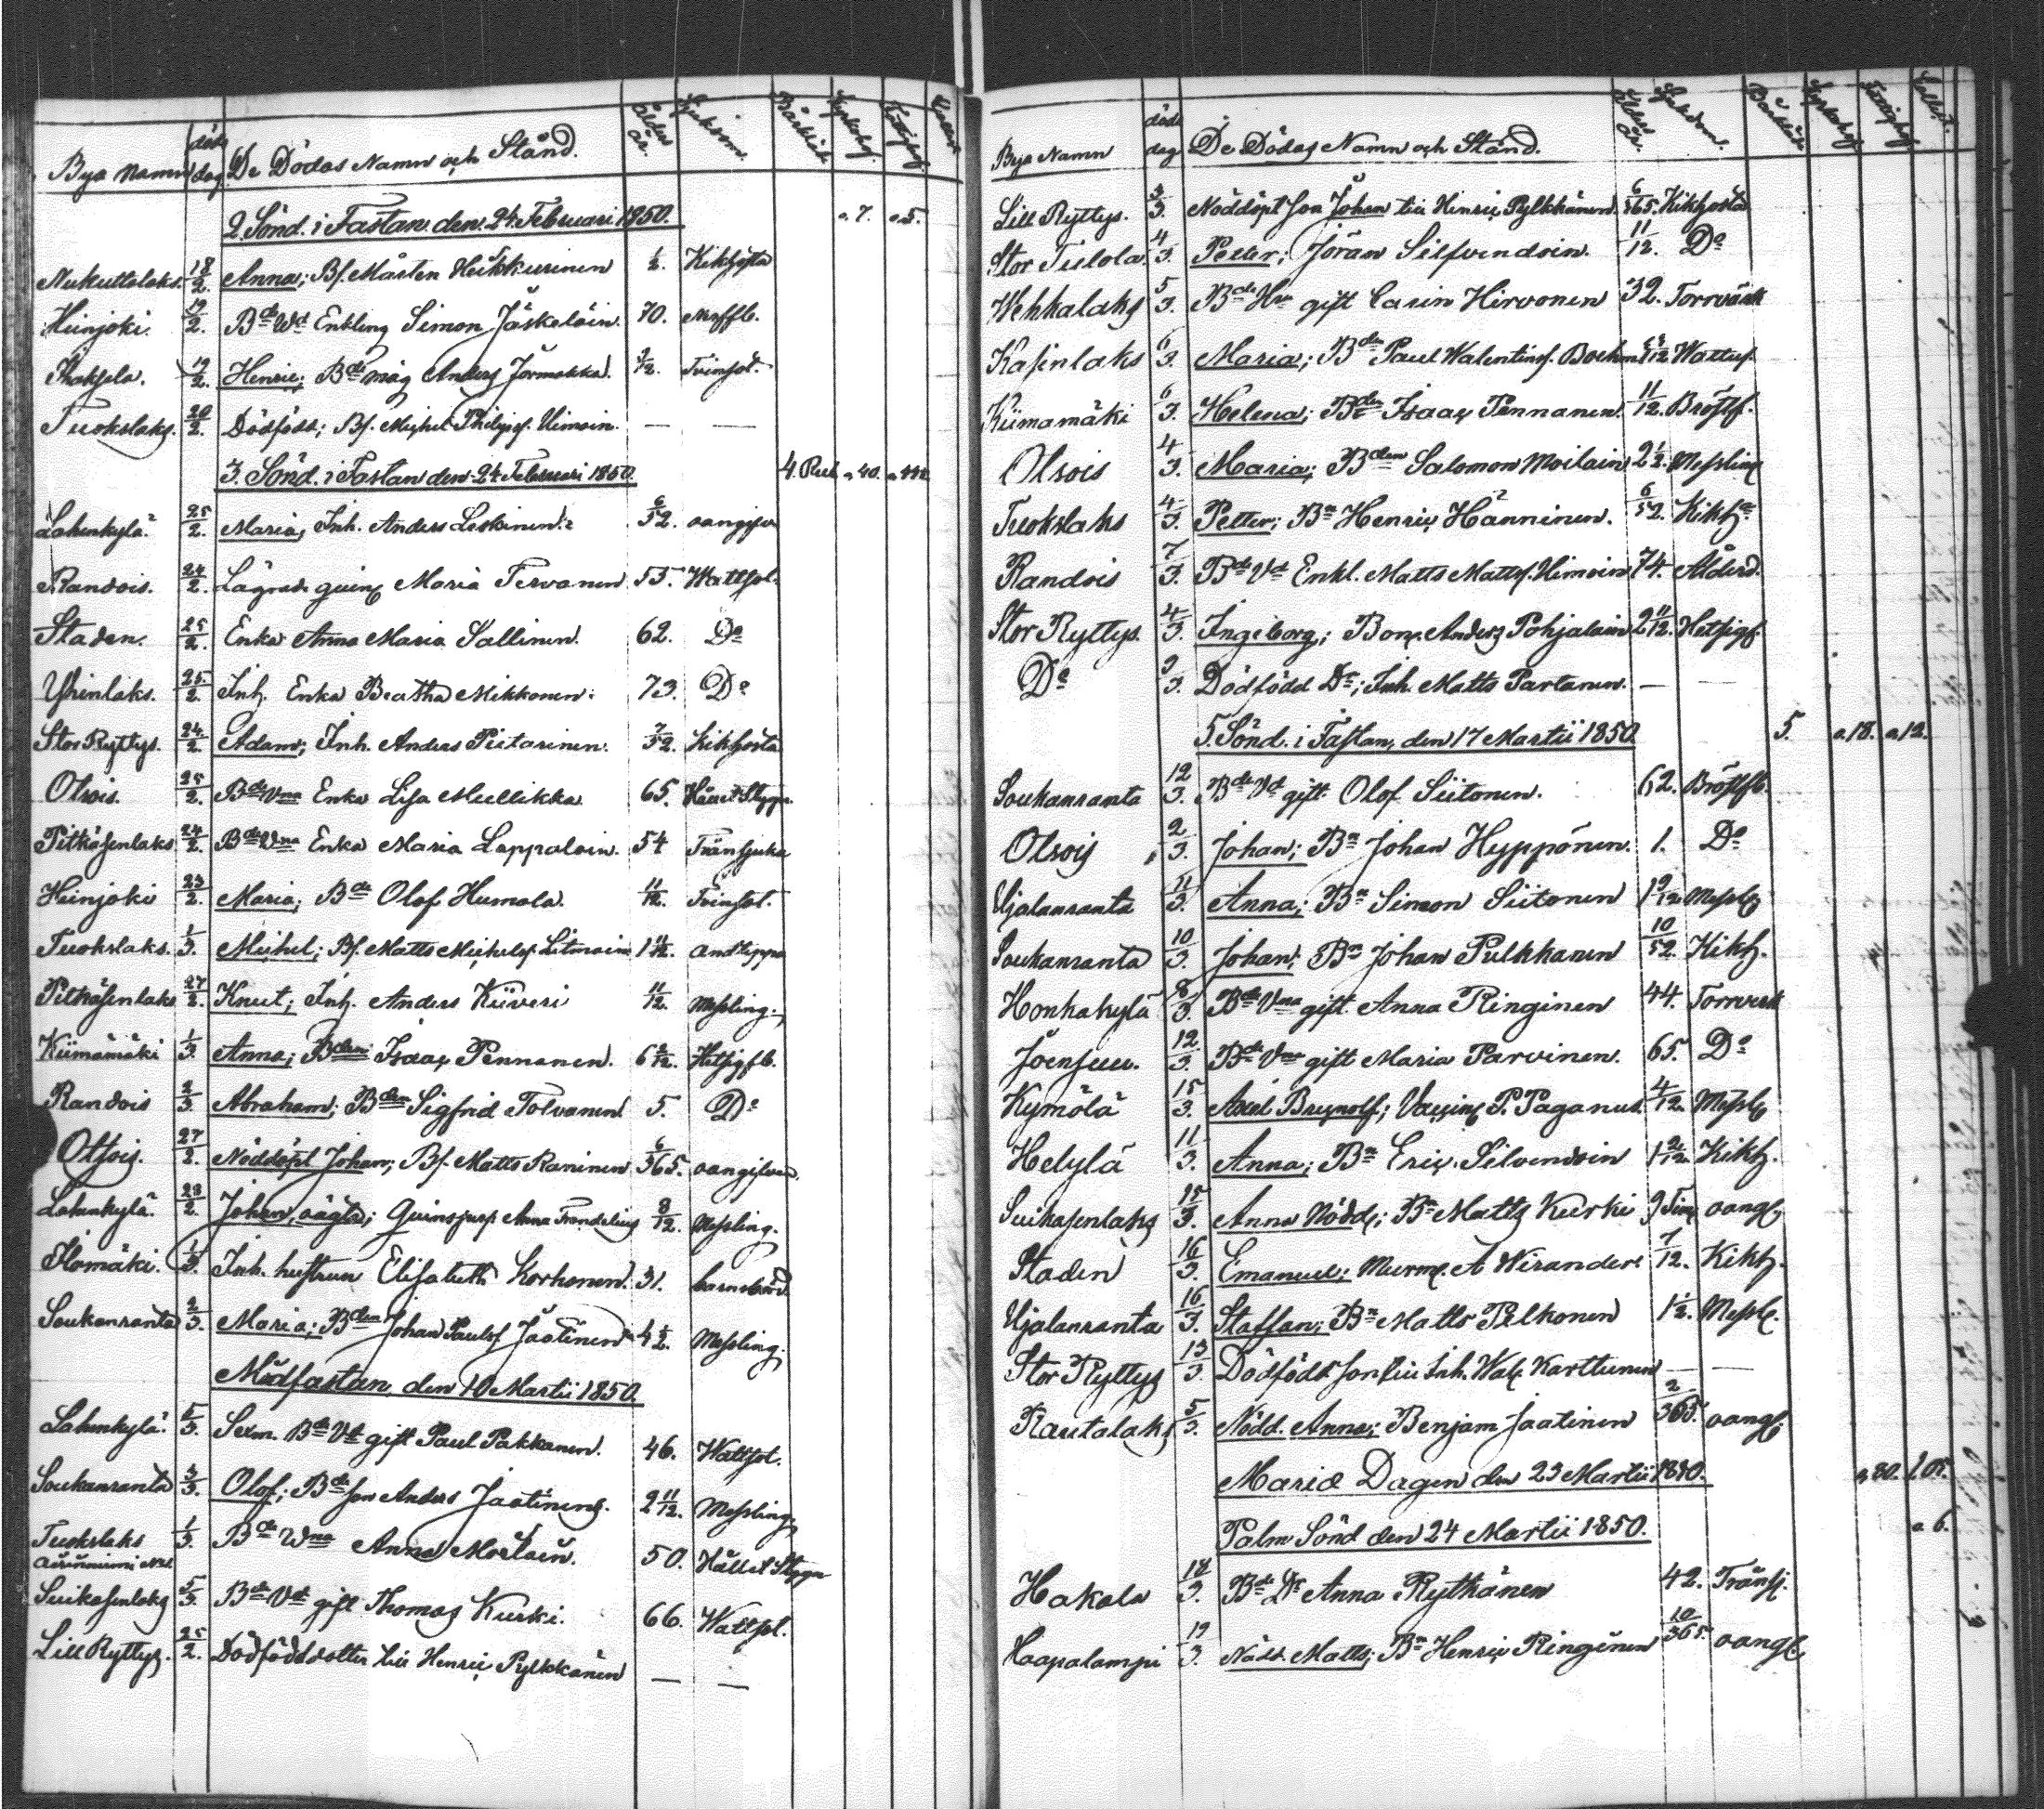 Bya Namn döds dag De Dödas Namn och Stånd. Ålder år. Sjukdom.
2. Sönd. i Fastan den 24 Februari 1850. 7. 5.
18/2. Anna; Bs. Mårten Heikkurinen 1/2. Kikhosta
Heinjoki. 19/2. Bde Enkling Simon Jäskeläin. 70.
19/2. Henric; Bde måg Anders Jormakka. Tvinsot.
Tuokslaks. 20/2. Dödfödd; Bs. Michel Philipss. Uimoin. — —
3. Sönd. i Fastan den 24 Februari 1850. 4. 40.
Lahenkylä. 25/2. Maria, Inh. Anders Leskinen. 6/52. oangifven
Randois. 24/2. Maria Tervanen 55. Wattsot.
Staden. 25/2. Enka Anna Maria Kallinen. 62. Do
Yhinlaks. 25/2. Inh. Enka Beatha Mikkonen. 73. Do
Stor Ryttys. 24/2. Adam; Inh. Anders Pietarinen. 7/52. Kikhosta
Otsois. 25/2. Bde Vna Enka Lisa Mullikka 65. Håll o Styng
Pitkäsenlaks 24/2. Bde Vna Enka Maria Lappalain. 54 Trånsjuka
Heinjoki 23/2. Maria; Bde Olof Humala. 11/12. Tvinsot.
Tuokslaks. 1/3. Michel; Bs. Matts Michelss. 1 11/12. Andtäppa
Pitkäsenlaks 27/2. Knut; Inh. Anders Kiiveri 11/12. Messling.
Kiimämäki 1/3. Anna; Bden Isaac Pennanen. 6 Hetsigfb.
Randois 2/3. Abraham; Bden Sigfrid Tolvanen. 5. Do
Otsois. 27/2. Nöddöpt Johan; Bs. Matts Raninen 6/365. oangifven.
Lahenkylä. 28/2. Johan, oägta; Qvinspers. Anna 8/12. Messling.
Ilomäki. 1/3. Inh. hustrun Elisabeth Korhonen. 31. barnsbörd
Soukanranta 2/3. Maria; Bden Johan Paulss. Jaatinen 4 1/2. Messling.
Midfastan den 10 Martii 1850.
Lahenkylä. 5/3. Sexm. Bde Vd gift Paul Pakkanen. 46. Wattsot.
Soukanranta 3/3. Olof; Bde son Anders Jaatinen. 2 11/12. Messling.
Tuokslaks 1/3. Bde Wna Anna Moilain. 50. Håll o Styng
Suikasenlaks 5/3. Bde Vd gift Thomas Kurki. 66. Wattsot.
Lill Ryttys. 25/2. Dödfödd dotter till Henric Pylkkänen — —
Bya Namn döds dag De Dödas Namn och Stånd. Ålder år. Sjukdom.
Lill Ryttys. 3/3. Nöddöpt son Johan till Henric Pylkkänen. 6/365. Kikhosta
Stor Tulola. 4/3. Petter; Jöran Silfvendoin. 11/12. Do
Wehkalaks 5/3. gift Carin Hirvonen 32. Torrvärk
Kasinlaks 6/3. Maria; Bden Paul Walentinss. Wattus.
Kiimamäki 6/3. Helena; Bden Isaac Pennanen. 11/12. Bröstf.
Otsois 4/3. Maria; Bden Salomon Moilain 2 1/2. Messling
Tuokslaks 4/3. Petter; Bn Henric Hänninen. 6/52. Kikh.
Randois 7/3. Bde Vd Enkl. Matts Mattss. Uimoin 74. Ålderd.
Stor Ryttys. 4/3. Ingeborg; Anders Pohjalain 2 11/12. Hetsigf.
Do 3/3. Dödfödd Inh. Matts Partanen. — —
5. Sönd. i Fastan, den 17 Martii 1850. 5. 18. 12.
Soukanranta 12/3. Bde Vd gift Olof Siitonen. 62. Bröstfb.
Otsois 2/3. Johan; Bn Johan Hyppönen. 1. Do
Ujalanranta 11/3. Anna; Bn Simon Siitonen 1 9/12 Messl.
Soukanranta 10/3. Johan; Bn Johan Pulkkanen 10/52. Kikh.
Honkakylä 8/3. Bde Vna gift Anna Ringinen 44. Torrverk
Joensuu. 12/3. Bde Vna gift Maria Parvinen. 65. Do
Kymölä 15/3. Axel Brynolf; P. Paganus. 4/12. Messl.
Helylä 11/3. Anna; Bn Eric Silvendoin 1 2/12. Kikh.
Suikasenlaks 15/3. Anna Nödd.; Bn Matts Kurki 9 Tim. oangf.
Staden 16/3. Emanuel; Murm. A Wirander. 7/12. Kikh.
Ujalanranta 16/3. Staffan; Bn Matts Pelkonen 1 1/2. Messl.
Stor Ryttys 13/3 Dödfödt son till Inh. Karttunen — —
Rautalaks 5/3. Nödd. Anna; Benjam. Jaatinen 2/365. oangf.
Mariæ Dagen den 23 Martii 1850. 80.
Palm Sönd den 24 Martii 1850. 6.
Hakala 18/3. Anna Rythänen 42. Tränsj.
Haapalampi 19/3. Nödd. Matts; Bn Henric Ringinen 10/365. oangf.